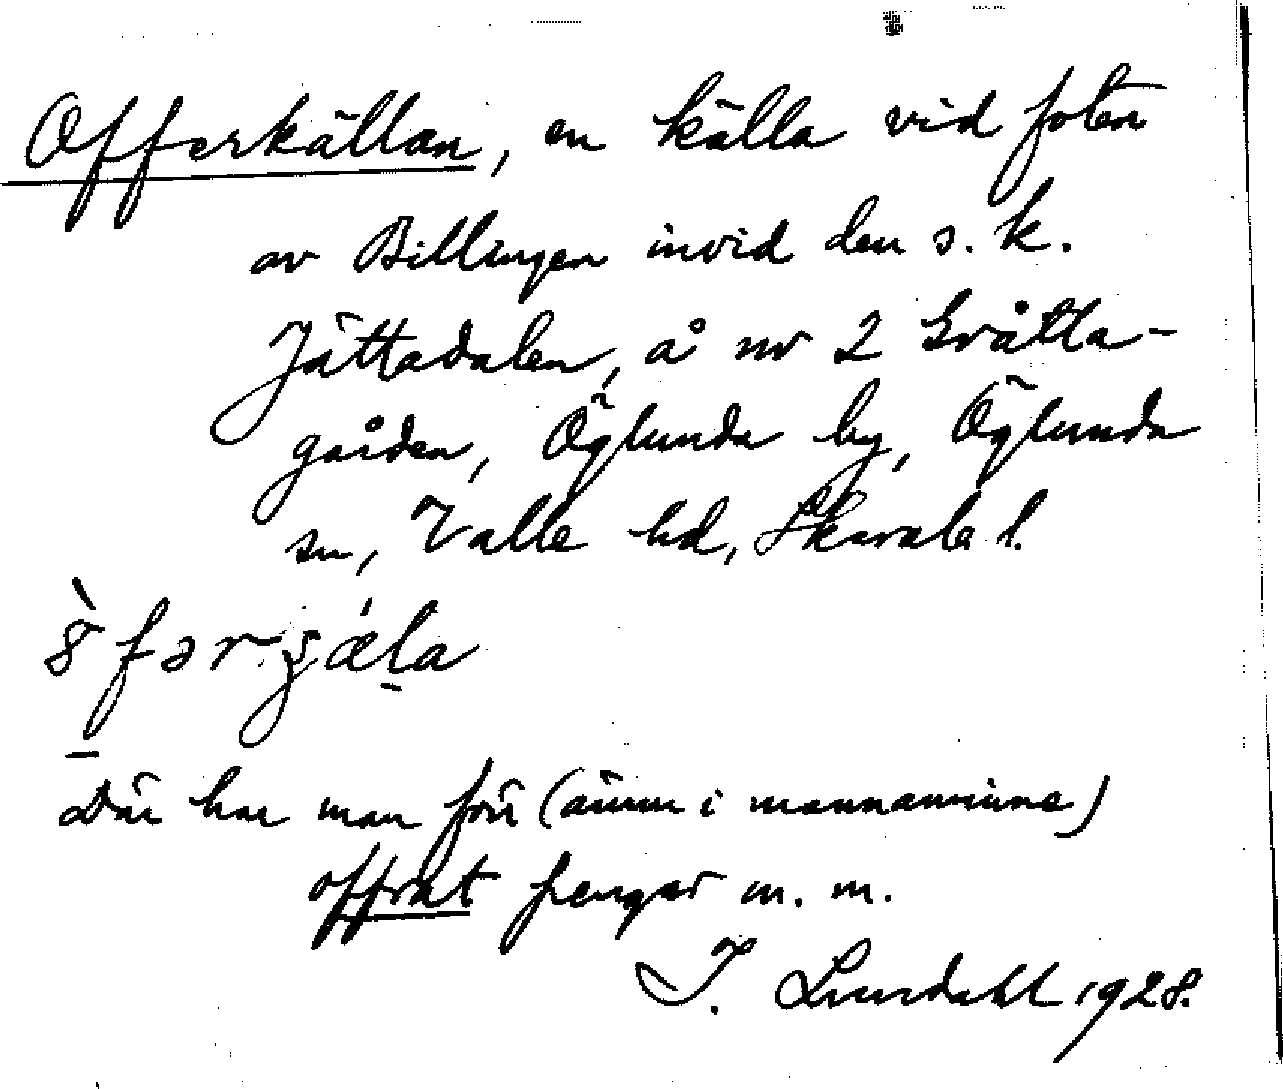 Offerkällan, en källa vid foten
av Billingen invid den s. k.
Jättadalen, å nr 2 Svålta-
gården, Öglunda by, Öglunda
sn, Valle hd, Skarab. l.
Där har man förr (ännu i mannaminne)
offrat pengar m. m.
I. Lundahl 1928.